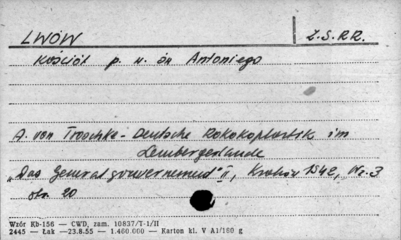 LWÓW Z.S.R.R.
Kościół p. w. św Antoniego
A. von Troschke - Deutsche Rokokoplastik im
Lembergerlande
„Das Generalgouvernement" II, Kraków 1942, Nr. 3
str. 20
Wzór Kb-156 — CWD, zam. 10837/T-1/II
2445 — Łak —23.8.55 — 1.400.000 — Karton kl. V A1/160 g